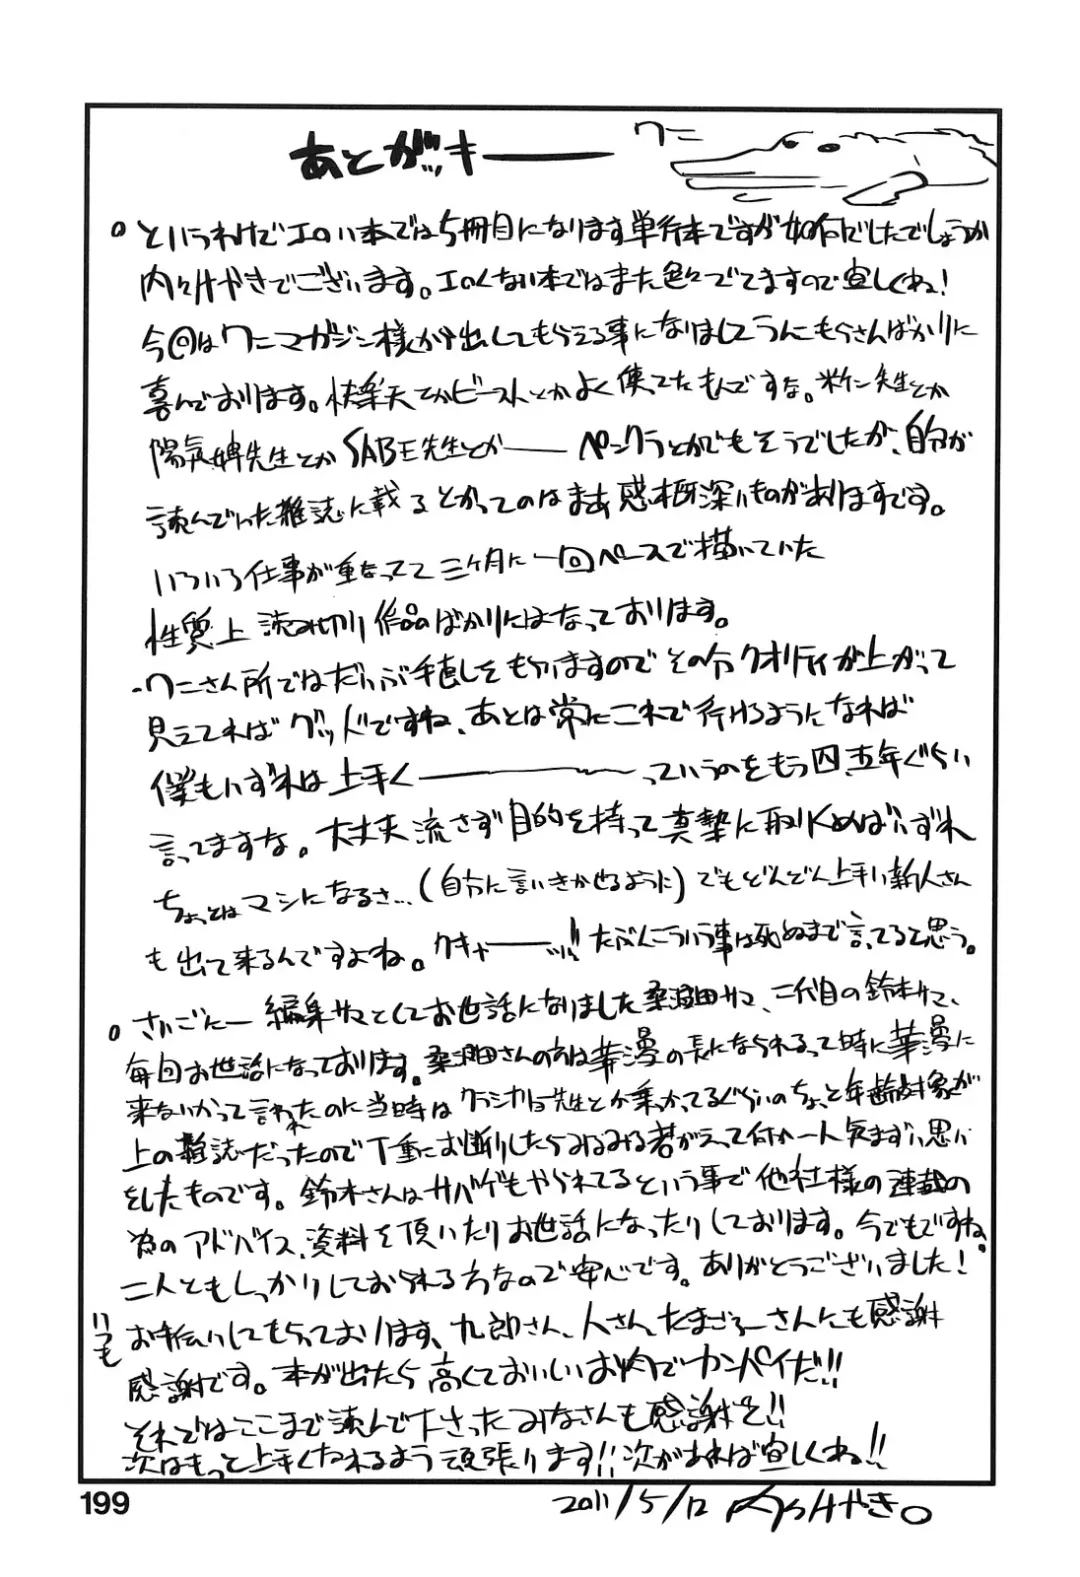 あとがッキーーー
ワニ
○というわけでエロい本では5冊目になります単行本ですが如何でしたでしょうか
内々けやきでございます。エロくない本ではまた色々でてますので宜しくね!
今回はワニマガジン様が出してもらえる事になりましてうんにもうさんばかりに
喜んでおります。快楽天とかビーストとかよく使ってたもんですな。米仁先生とか
陽気婢先生とかSABE先生とか―― ペンクラとかでもそうでしたが、自分が
読んでいた雑誌に載るとかってのはまあ感慨深いものがありますです。
いろいろ仕事が重なってて三ヶ月に一回ペースで描いていた
性質上 読み切り作品ばかりにはなっております。
・ワニさん所ではだいぶ手直しをもらいますのでその分クオリティが上がって
見えてればグッドですね、あとは常にこれで行けるようになればば
僕もいずれは上手く――――っていうのをもう四、五年ぐらい
言ってますな。大丈夫 流さず目的を持って真摯に取り組めばいずれ
ちょっとはマシになるさ…(自分に言いきかせるように)でもどんどん上手い新人さん
も出て来るんですよね。ウキャーーッ!!たぶんこういう事は死ぬまで言ってると思う。
○さいごにー 編集サマとしてお世話になりました桑沼田サマ、二代目の鈴木サマ、
毎回お世話になっております。桑沼田さんの方は華漫の長になられるって時に華漫に
来ないかって言われたのに当時はクジラックス先生とか乗ってるぐらいのちょっと年齢対象が
上の雑誌だったので丁重にお断りしたらみるみる若がえって何か一人気まずい思い
をしたものです。鈴木さんはサバゲもやられてるという事で他社様の連載の
為のアドバイス、資料を頂いたりお世話になったりしております。今でもですね。
二人ともしっかりしておられる方なので安心です。ありがとうございました!
いつも
お手伝いしてもらっております、九郎さん、人さん、たまごろーさんにも感謝
感謝です。本が出たら高くておいしいお肉でカンパイだ!!
それではここまで読んで下さったみなさんも感謝を!!
次はもっと上手くなれるよう頑張ります!!次があれば宜しくね!!
199
2011/5/12 内々けやき。